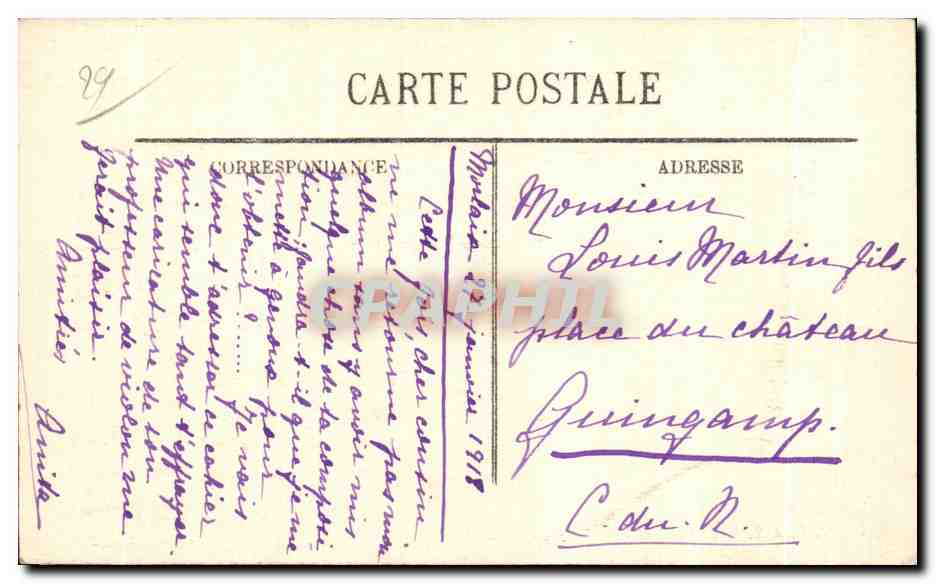 29
CARTE POSTALE
CORRESPONDANCE
ADRESSE
Morlaix 23 janvier 1918
Cette fois, cher cousin
ne me retourne pas mon
album sans y avoir mis
quelque chose de ta composi
tion, faudra-t-il que je me
mette à genoux pour
l'obtenir ? .....
Je vais
donc t'adresser ce cahier
qui semble tant t'effrayer.
Une caricature de ton
professeur de violon me
ferait plaisir.
Amitiés
Anita
Monsieur
Louis Martin fils
place du château
Guingamp.
C. du. N.
CPAPHIL